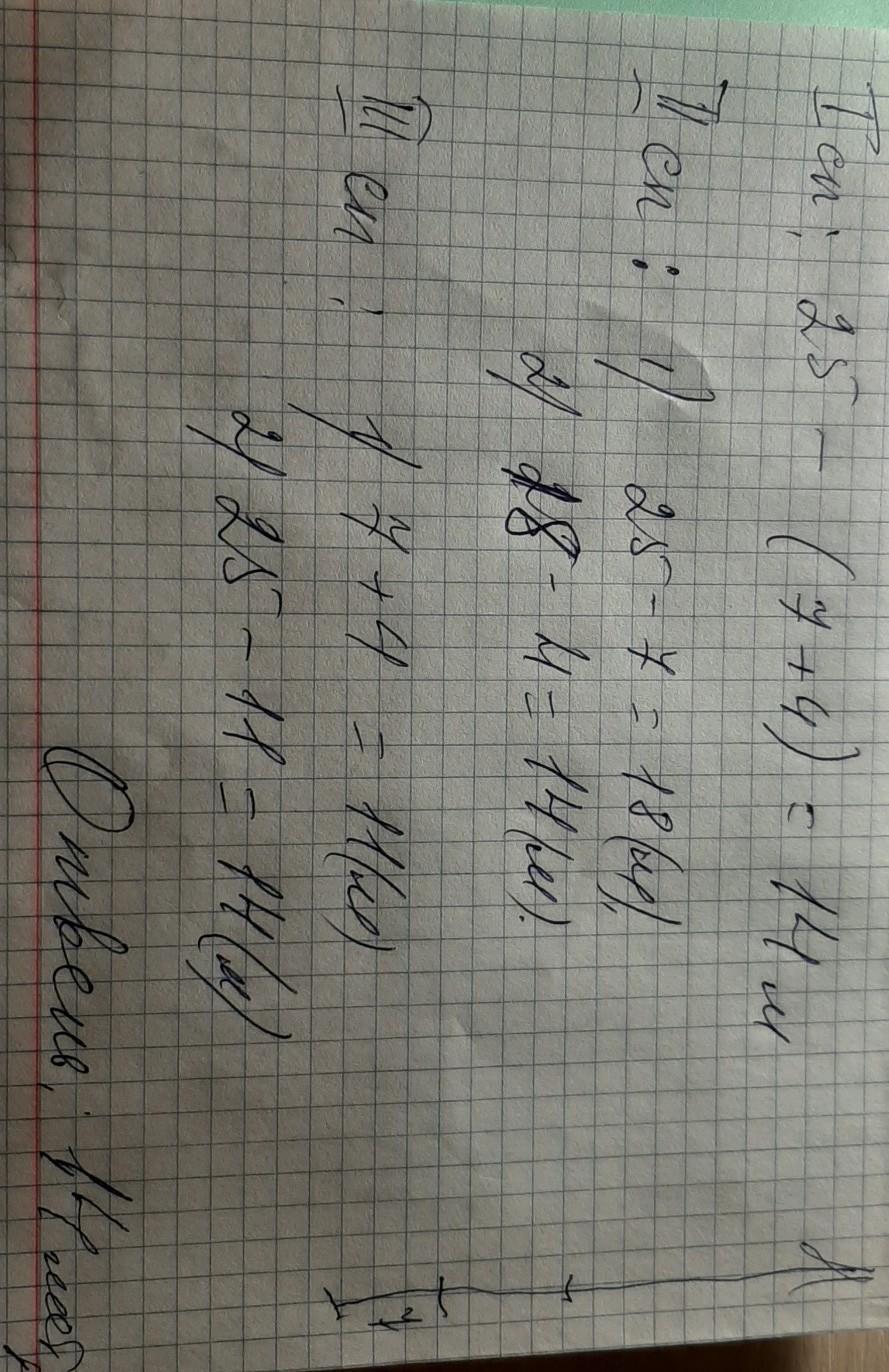 I сп: 25 - (7+4) = 14 м
II сп: 1) 25 - 7 = 18 (м)
2) 18 - 4 = 14 (м).
III сп: 1) 7 + 4 = 11 (м)
2) 25 - 11 = 14 (м)
Ответ: 14